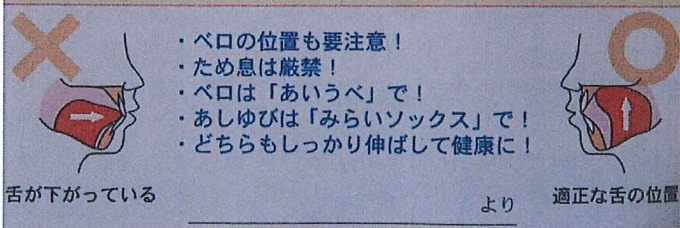 ・ベロの位置も要注意！
・ため息は厳禁！
・ベロは「あいうべ」で！
・あしゆびは「みらいソックス」で！
・どちらもしっかり伸ばして健康に！
舌が下がっている
より
適正な舌の位置